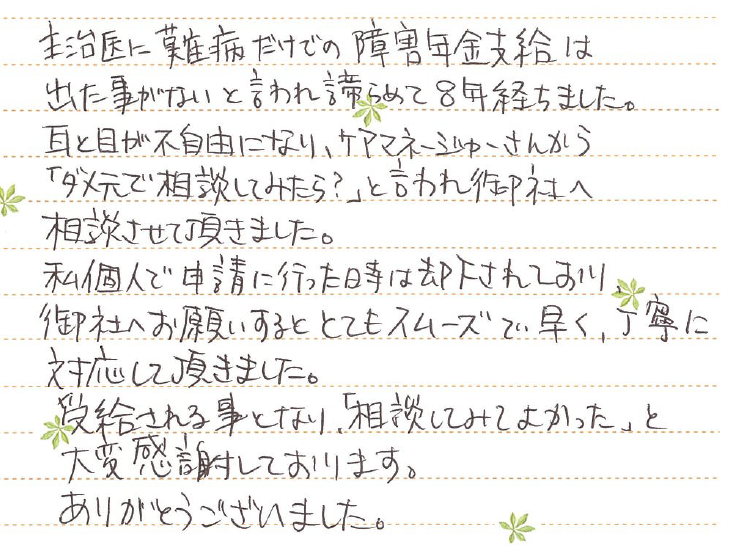 主治医に難病だけでの障害年金支給は
出た事がないと言われ諦らめて8年経ちました。
耳と目が不自由になり、ケアマネージャーさんから
「ダメ元で相談してみたら?」と言われ御社へ
相談させて頂きました。
私個人で申請に行った時は却下されており、
御社へお願いするととてもスムーズで早く、丁寧に
対応して頂きました。
受給される事となり、「相談してみてよかった」と
大変感謝しております。
ありがとうございました。